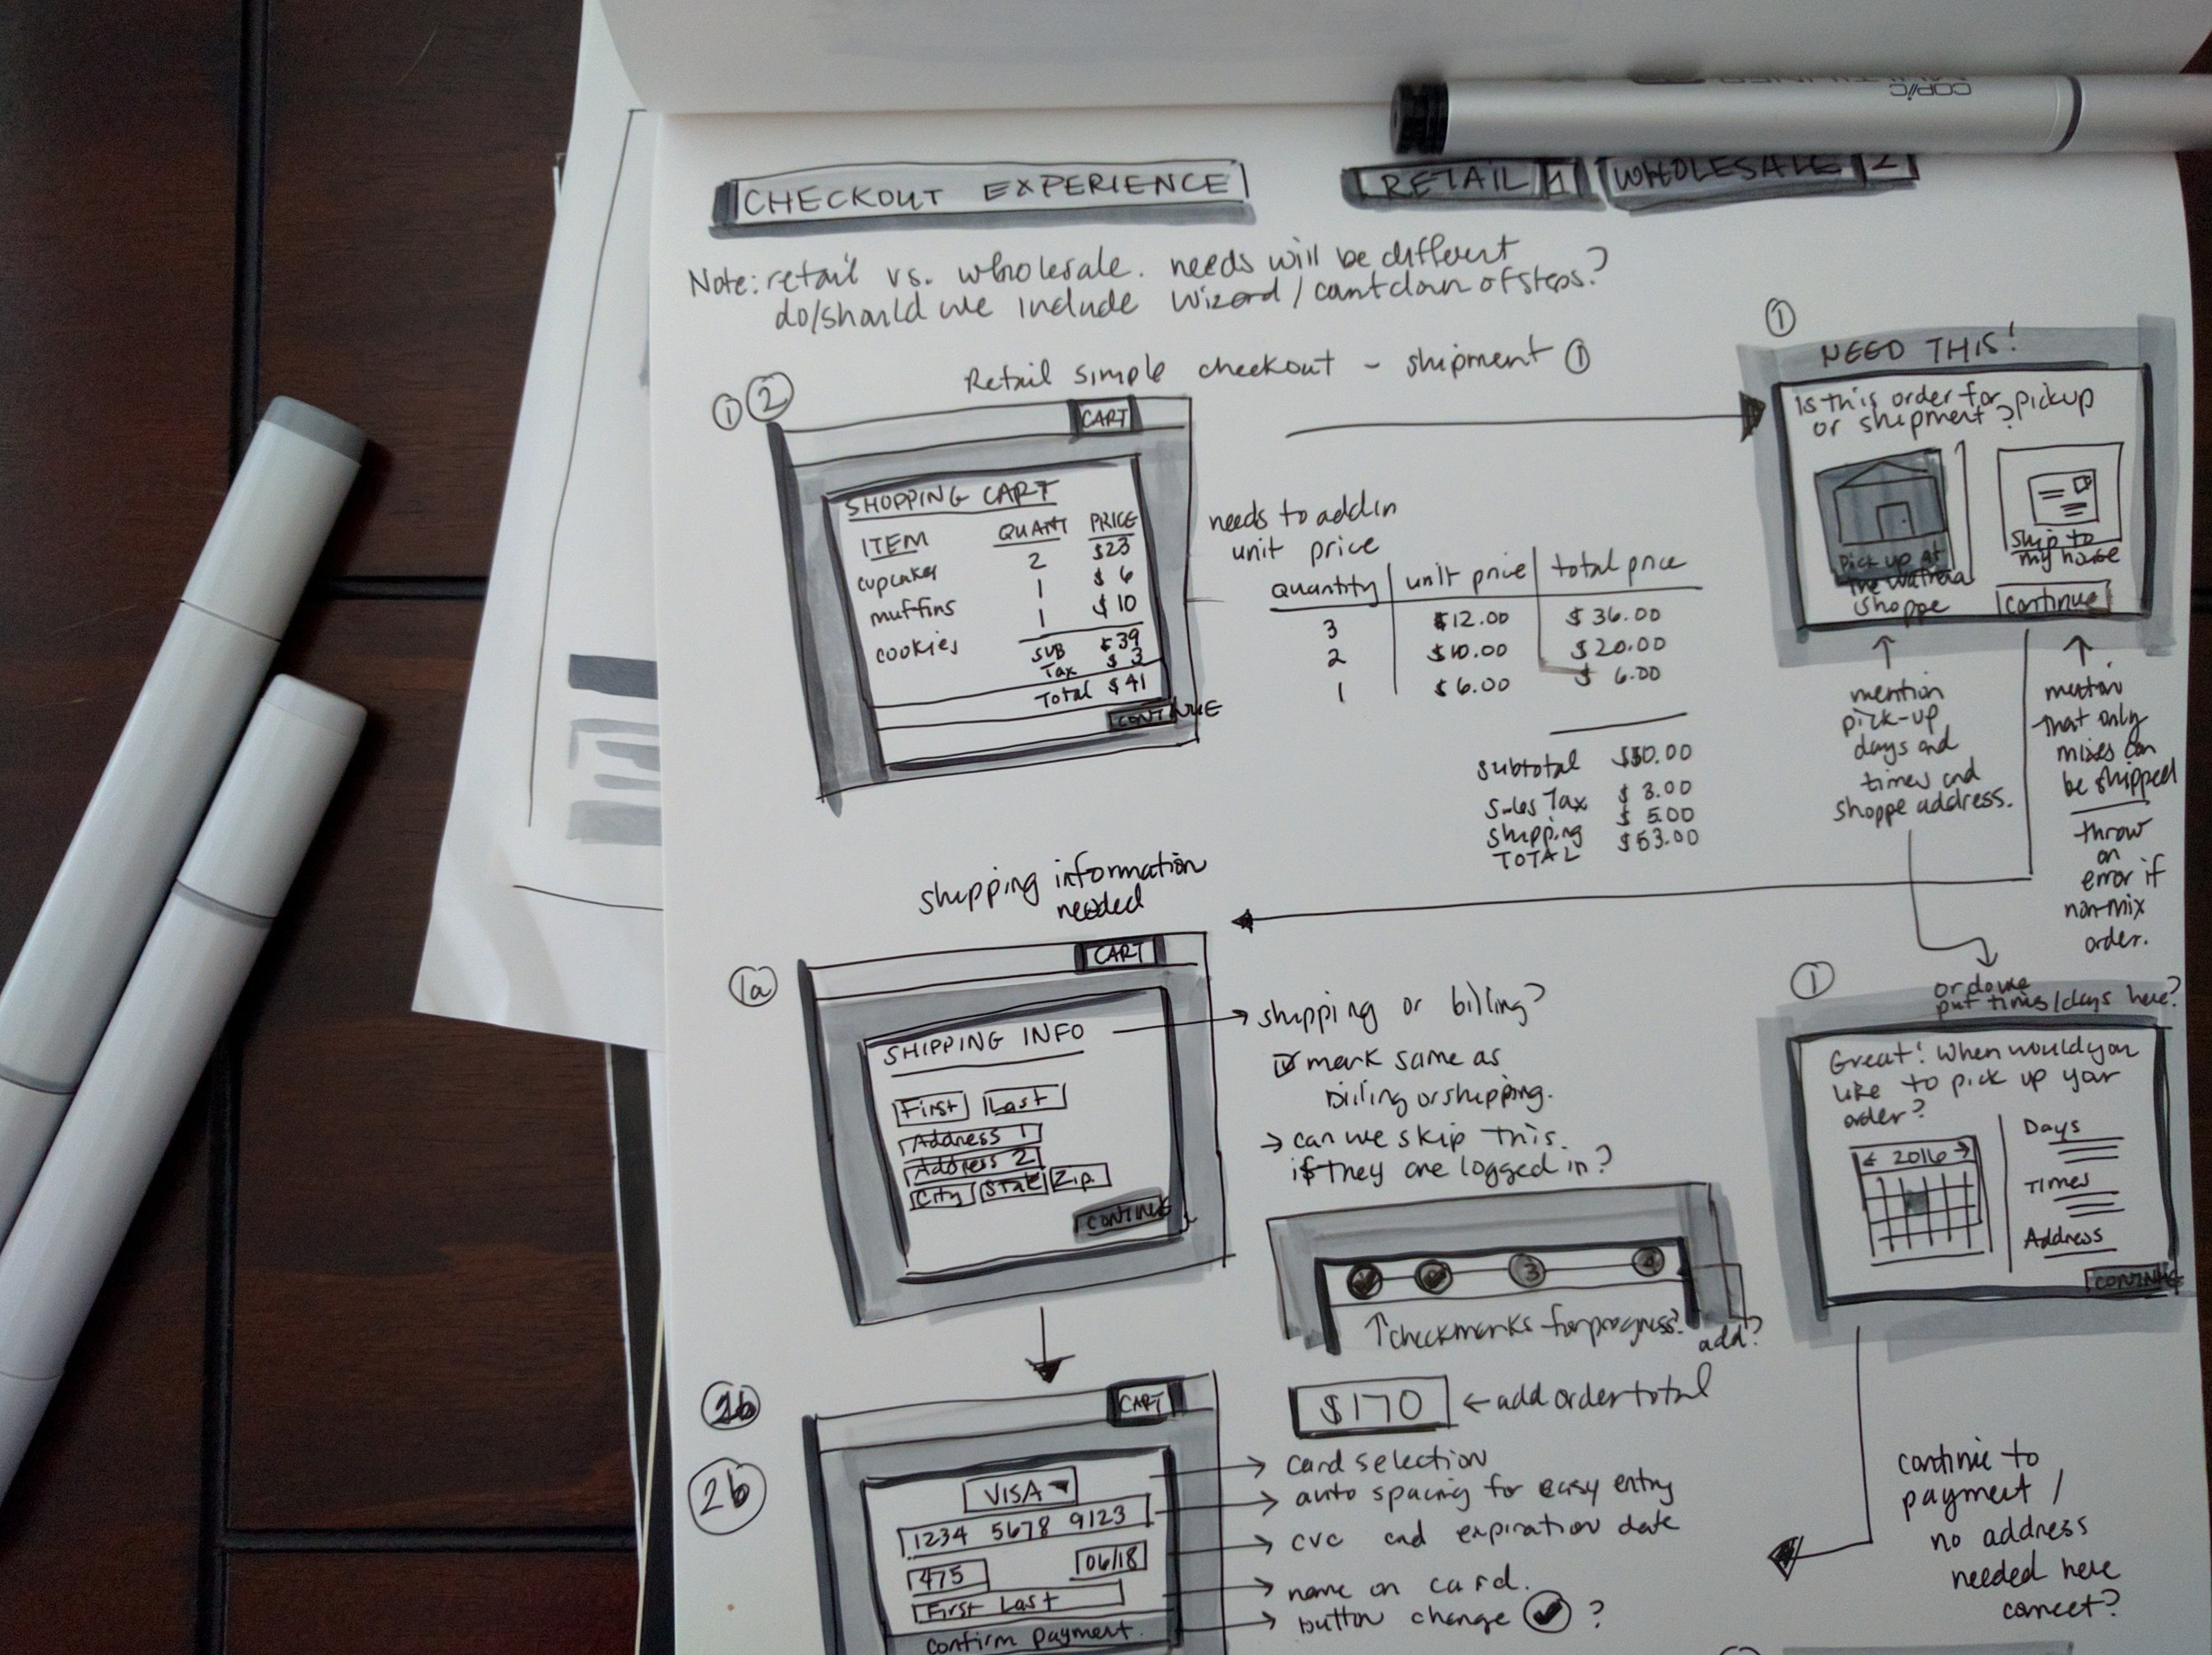 COPIC
CHECKOUT EXPERIENCE
RETAIL 1 WHOLESALE 2
Note: retail vs. wholesale. needs will be different
do/should we include wizard / countdown of steps?
Retail simple checkout - shipment 1
1 2
CART
SHOPPING CART
ITEM QUANT PRICE
cupcakes 2 $23
muffins 1 $6
cookies 1 $10
SUB $39
Tax $3
Total $41
CONTINUE
needs to add in
unit price
quantity unit price total price
3 $12.00 $36.00
2 $10.00 $20.00
1 $6.00 $6.00
subtotal
Sales Tax $3.00
shipping $5.00
TOTAL $53.00
1
NEED THIS!
Is this order for pickup
or shipment?
Pick up at
the
shoppe
Ship to
my house
Continue
mention
pick-up
days and
times and
shoppe address.
mention
that only
mixes can
be shipped
throw
an
error if
non-mix
order.
shipping information
needed
1a
CART
SHIPPING INFO
First Last
Address 1
Address 2
City State Zip
CONTINUE
shipping or billing?
mark same as
billing or shipping.
can we skip this
if they are logged in?
3 4
checkmarks for progress?
add?
1
or do we
put times/days here?
Great! When would you
like to pick up your
order?
2016
Days
Times
Address
CONTINUE
continue to
payment /
no address
needed here
correct?
$170 add order total
2b
CART
VISA
1234 5678 9123
475 06/18
First Last
Confirm payment.
card selection
auto spacing for easy entry
cvc and expiration date
name on card.
button change ?